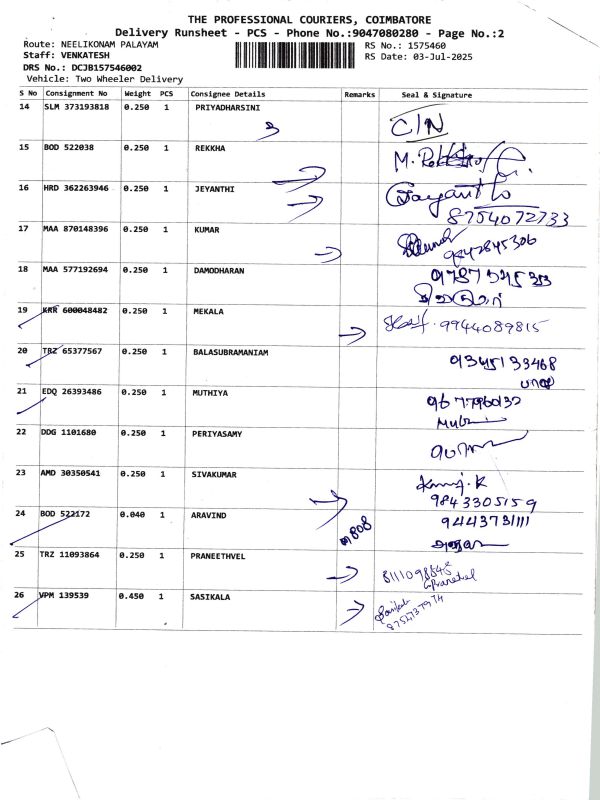 THE PROFESSIONAL COURIERS, COIMBATORE
Delivery Runsheet - PCS - Phone No.:9047080280 - Page No.:2
Route: NEELIKONAM PALAYAM
RS No.: 1575460
Staff: VENKATESH
RS Date: 03-Jul-2025
DRS No.: DCJB157546002
Vehicle: Two Wheeler Delivery
S No Consignment No Weight PCS Consignee Details Remarks Seal & Signature
14 SLM 373193818 0.250 1 PRIYADHARSINI
C/N
15 BOD 522038 0.250 1 REKKHA
M.
16 HRD 362263946 0.250 1 JEYANTHI
Jayanthi
8754072733
17 MAA 870148396 0.250 1 KUMAR
9842845306
18 MAA 577192694 0.250 1 DAMODHARAN
19 KRR 600048482 0.250 1 MEKALA
9944089815
20 TRZ 65377567 0.250 1 BALASUBRAMANIAM
9345133468
21 EDQ 26393486 0.250 1 MUTHIYA
22 DDG 1101680 0.250 1 PERIYASAMY
23 AMD 30350541 0.250 1 SIVAKUMAR
9843305159
24 BOD 522172 0.040 1 ARAVIND
9443731111
25 TRZ 11093864 0.250 1 PRANEETHVEL
26 VPM 139539 0.450 1 SASIKALA
Sasikala